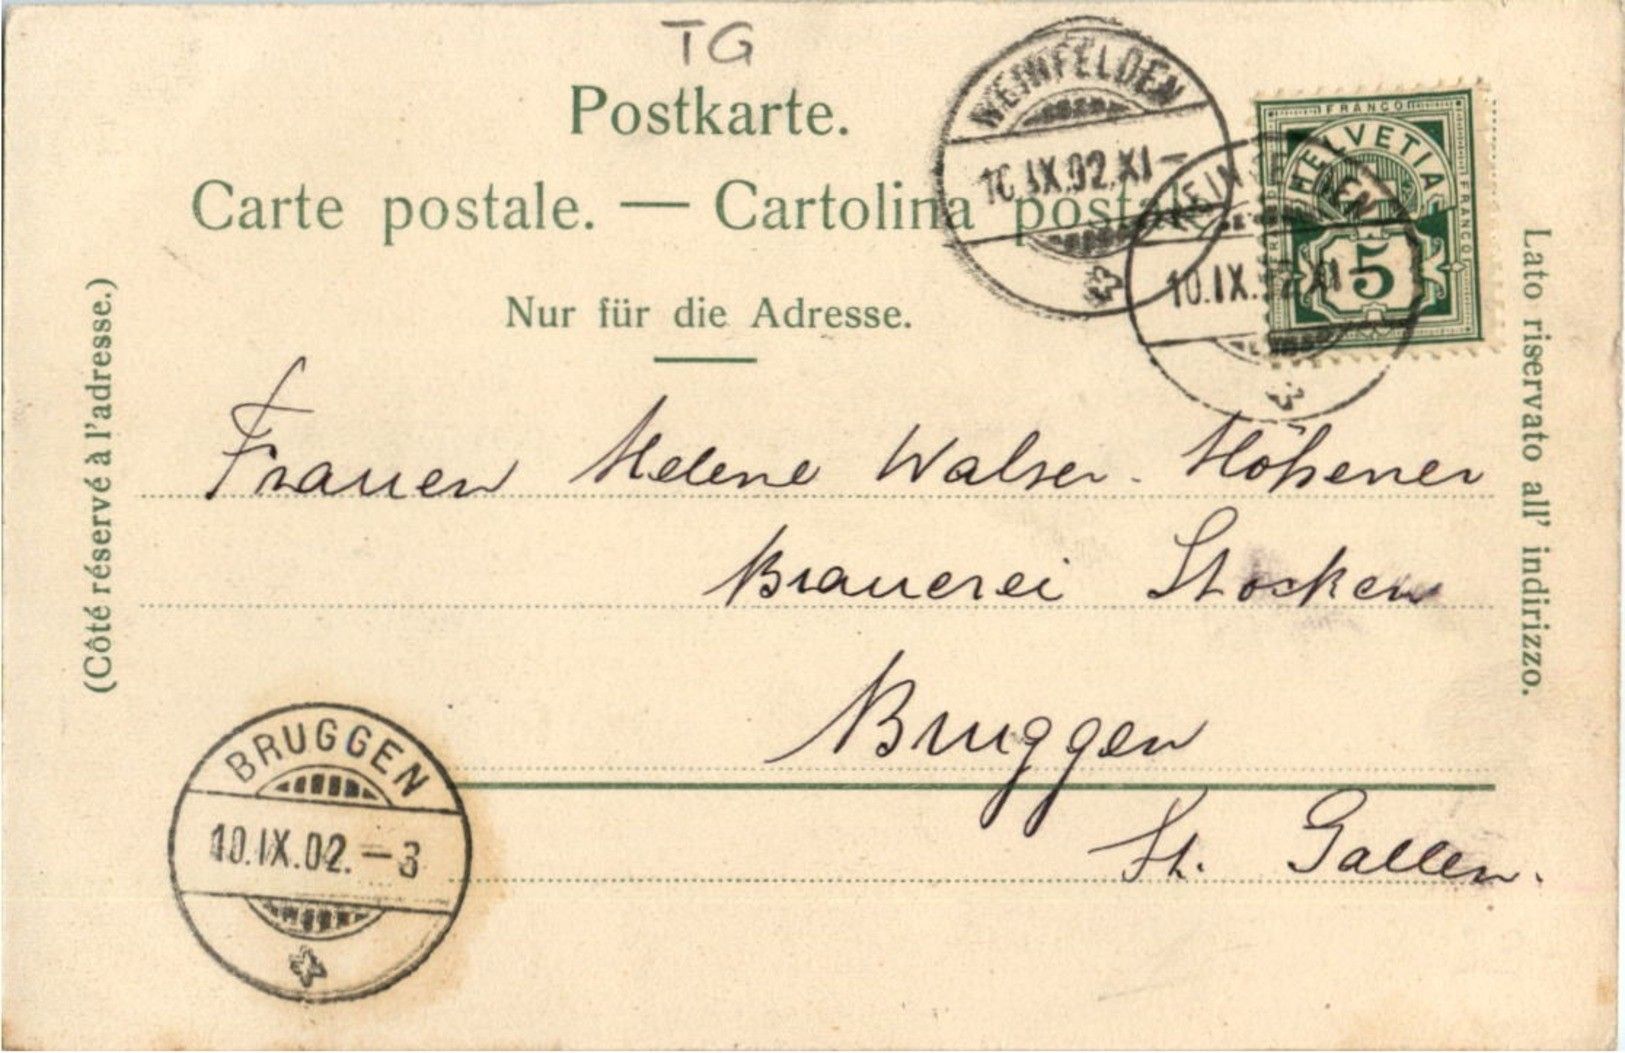 TG
Postkarte.
Carte postale. — Cartolina postale.
Nur für die Adresse.
(Côté réservé à l'adresse.)
Lato riservato all' indirizzo.
WEINFELDEN
10.IX.02.XI–
WEINFELDEN
10.IX.02 XI–
FRANCO
HELVETIA
FRANCO
5
Frauen Helene Walser. Höhener
Brauerei Stocken
Bruggen
St. Gallen.
BRUGGEN
10.IX.02.–3